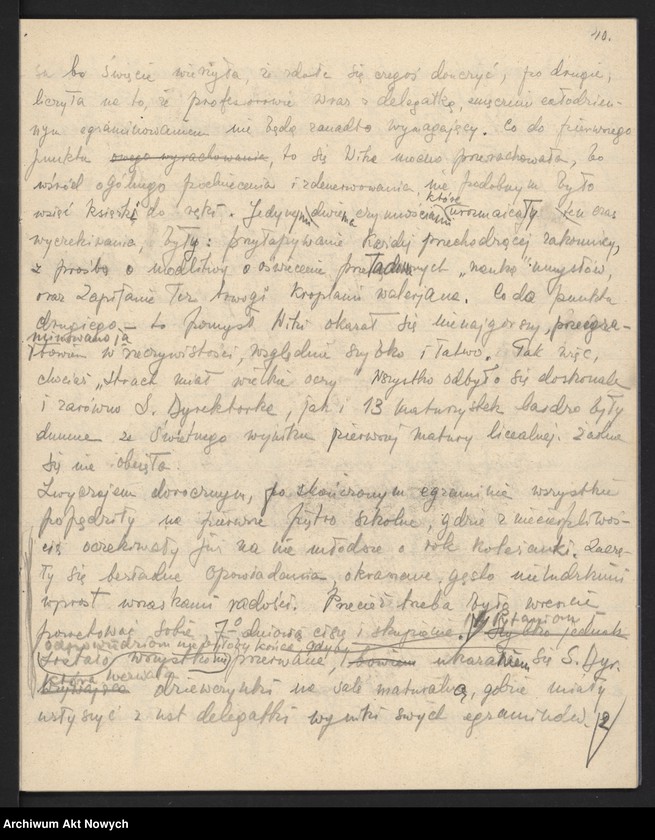 40.
bo święcie wierzyła, że zdoła się czegoś douczyć, po drugie,
liczyła na to, że profesorowie wraz z delegatką, zmęczeni całodzien-
nym egzaminowaniem nie będą zanadto wymagający. Co do pierwszego
punktu owego wyrachowania, to się Wika mocno przerachowała, bo
wśród ogólnego podniecenia i zdenerwowania, nie podobnym było
wziąć książki do ręki. Jedynymi dwiema czynnościami które urozmaicały ten czas
wyczekiwania, były: przyłapywanie każdej przechodzącej zakonnicy,
z prośbą o modlitwy o oświecenie przeładowanych "nauką" umysłów,
oraz zapijanie tez trwogi kroplami waleriana. Co do punktu
drugiego – to pomysł Wiki okazał się nienajgorszy, przeegza-
minowano ją
bowiem w rzeczywistości, względnie szybko i łatwo. Tak więc,
chociaż "strach miał wielkie oczy" wszystko odbyło się doskonale
i zarówno S. Dyrektorka, jak i 13 maturzystek bardzo były
dumne ze świetnego wyniku pierwszej matury licealnej. Żadna
się nie obcięła.
Zwyczajem dorocznym, po skończonym egzaminie wszystkie
popędziły na pierwsze piętro szkolne, gdzie z niecierpliwoś-
cią oczekiwały już na nie młodsze o rok koleżanki. Zaczę-
ły się bezładne opowiadania, okraszane, gęsto nieludzkimi
wprost wrzaskami radości. Przecież trzeba było wreszcie
powetować sobie 7-o dniową ciszę i skupienie. Pytaniom
odpowiedziom nie byłoby końca, gdyby
zostało wszystko przerwane, bowiem ukazaniem się S. Dyr.
która wezwała
wzywająca dziewczynki na salę maturalną, gdzie miały
usłyszeć z ust delegatki wyniki swych egzaminów.
2
Archiwum Akt Nowych